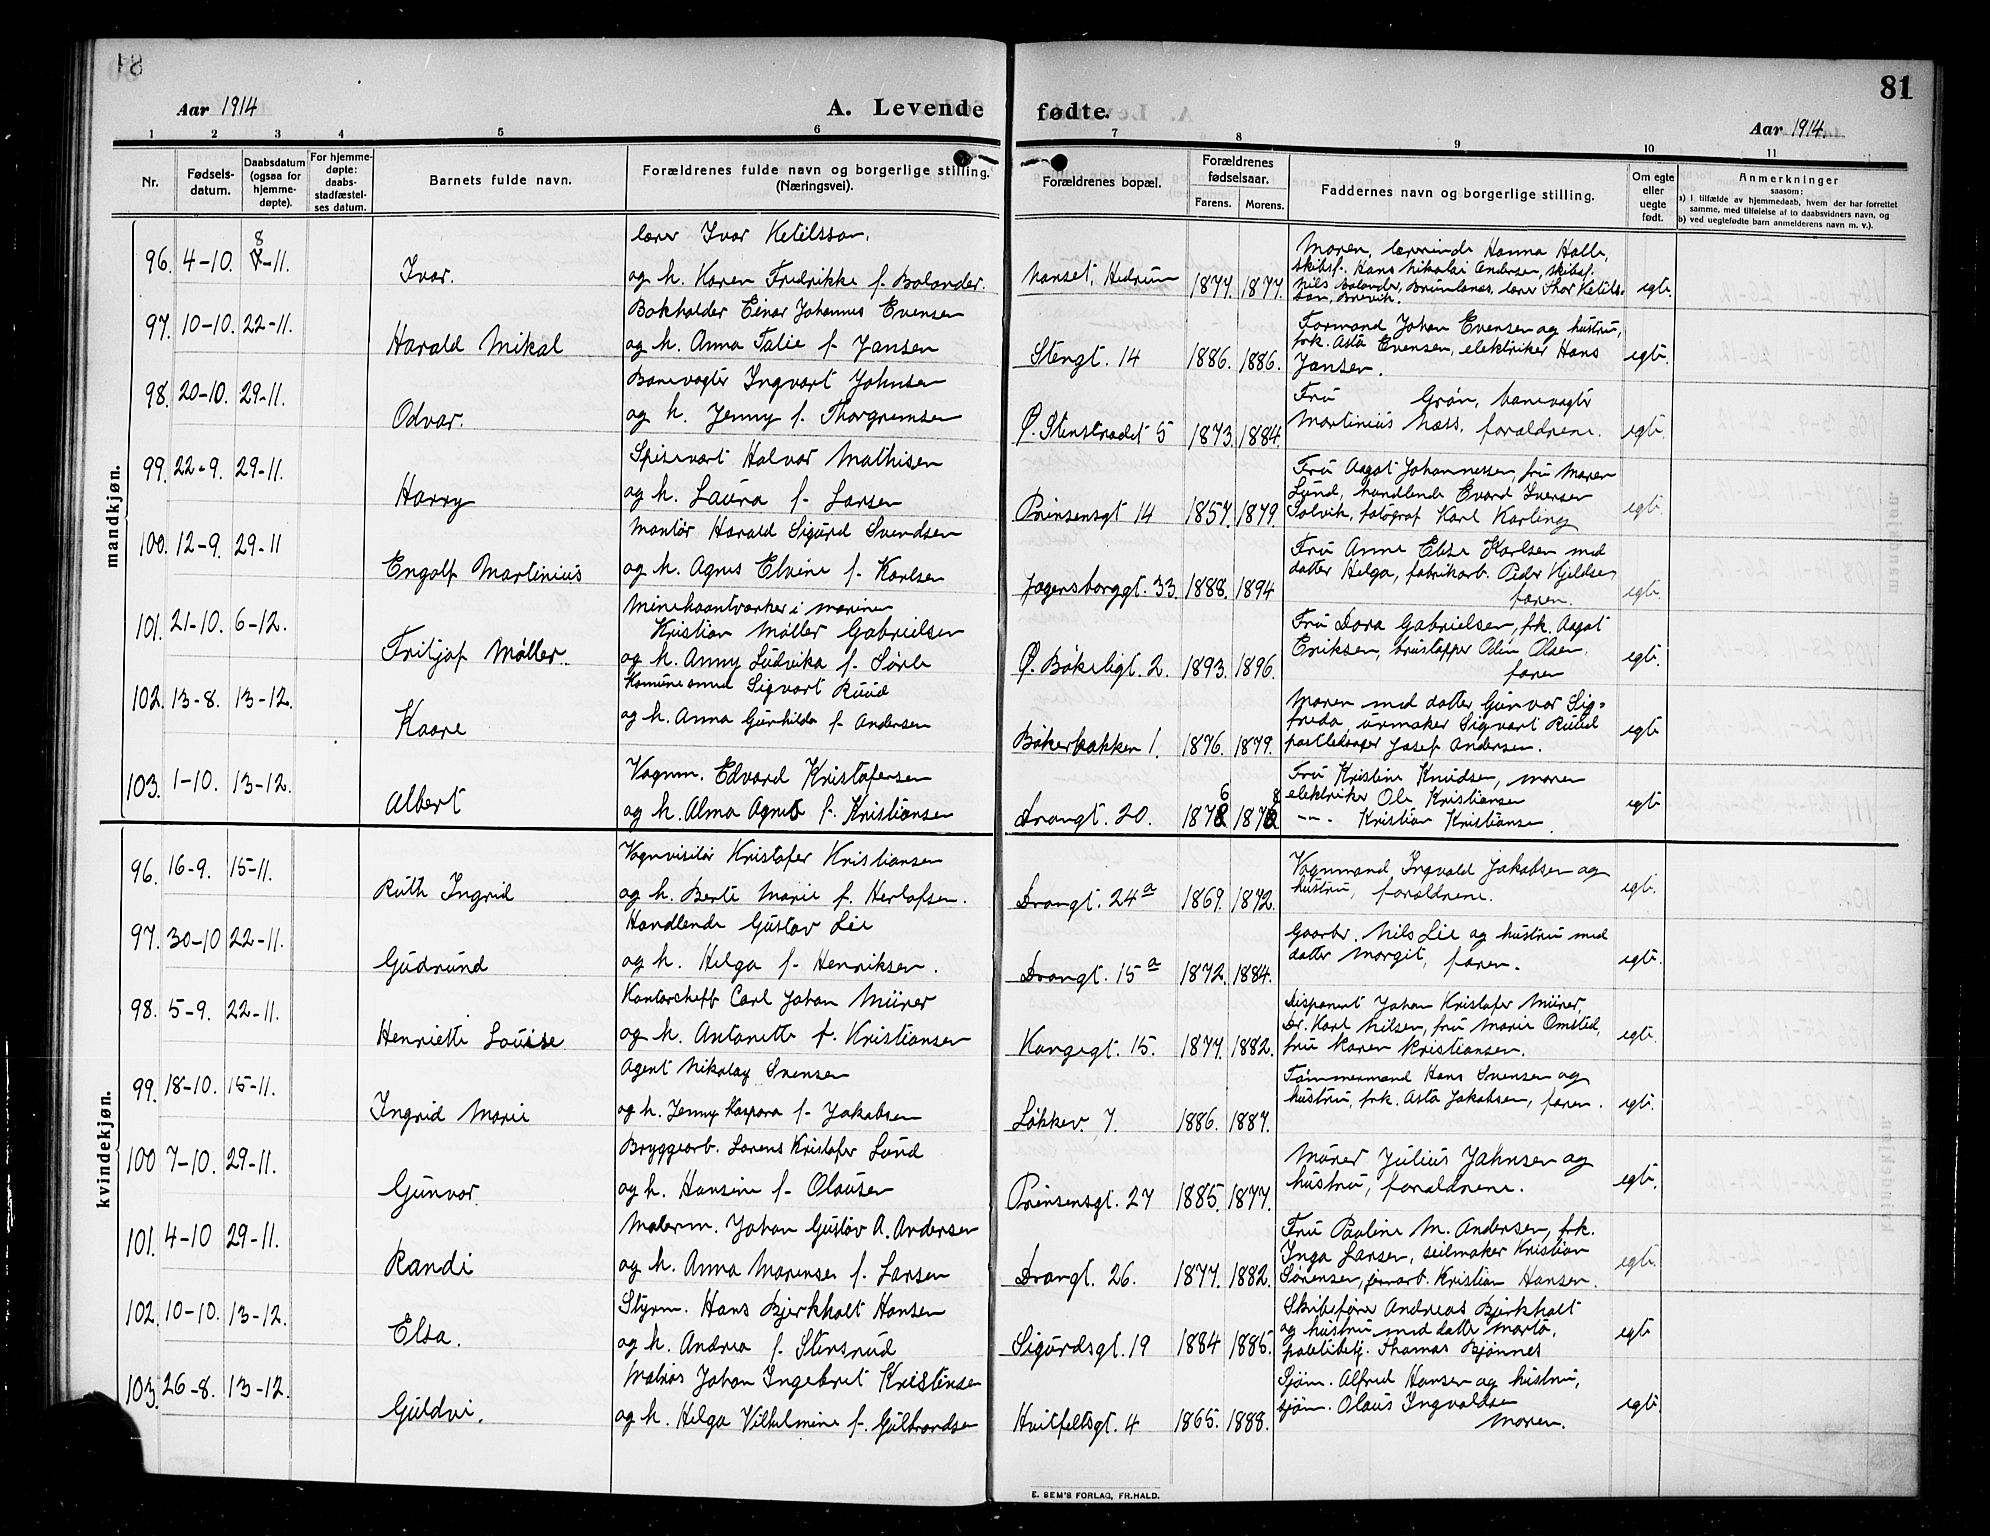 81
Aar 1914
A. Levende fødte.
Aar 1914.
81
1 2 3 4 5 6 7 8 9 10 11
Nr.
Fødsels-
datum.
Daabsdatum
(ogsaa for
hjemme-
døpte).
For hjemme-
døpte:
daabs-
stadfæstel-
ses datum.
Barnets fulde navn.
Forældrenes fulde navn og borgerlige stilling.
(Næringsvei).
Forældrenes bopæl.
Forældrenes
fødselsaar.
Farens. Morens.
Faddernes navn og borgerlige stilling.
Om egte
eller
uegte
født.
Anmerkninger
saasom:
a) i tilfælde av hjemmedaab, hvem der har forrettet
samme, med tilføielse af to daabsvidners navn, og
b) ved uegtefødte barn anmelderens navn m. v.).
mandkjøn.
96. 4-10. 8-11. Ivar.
lærer Ivar Ketilsson.
og h. Karen Fredrikke f. Bolander.
Nanset, Hedrum 1877. 1877.
Moren, lærerinde Hanna Halle,
skibsf. Hans Nikolai Andersen, skibsf.
Nils Bolander, Brunlanes, lærer Thor Ketils-
son, Brevik.
egte.
97. 10-10. 22-11. Harald Mikal
Bokholder Einar Johannes Evensen
og h. Anna Talie f. Jansen
Stengt. 14 1886. 1886.
Formand Johan Evensen og hustru,
frk. Asta Evensen, elektriker Hans
Jansen.
egte.
98. 20-10. 29-11. Odvar.
Banevogter Ingvart Johnsen
og h. Jenny f. Thorgremsen
Ø. Stenstrædet 5 1873. 1884.
Fru Grøn, banevogter
Martinius Næss, forældrene.
egte.
99. 22-9. 29-11. Harry
Spisevert Halvor Mathisen
og h. Laura f. Larsen
Prinsensgt 14 1857. 1879.
Fru Aagot Johannessen, fru Maren
Lund, handlende Evard Iversen
Solvik, fotograf Karl Karling
egte.
100. 12-9. 29-11 Engolf Martinius
Montør Harald Sigurd Svendsen
og h. Agnes Elvine f. Karlsen
Jegersborggt. 33. 1888. 1894
Fru Anne Elise Karlsen med
datter Helga, fabrikarb. Peder Kjeldsen
faren.
egte.
101. 21-10. 6-12. Fritjof Møller.
Minehaantverker i marinen
Kristian Møller Gabrielsen
og h. Anny Ludvika f. Sørli
Ø. Bøkeligt. 2. 1893. 1896.
Fru Dora Gabrielsen, frk. Aagot
Eriksen, brustapper Odin Olsen,
faren
egte.
102. 13-8. 13-12. Kaare
Sigvart Ruud
og h. Anna Gunhilda f. Andersen
Bøkerbakken 1. 1876. 1879.
Moren med datter Gunvor Sig-
freda, urmaker Sigvart Ruud
Josef Andersen.
egte
103. 1-10. 13-12. Albert
Vognm. Edvard Kristofersen
og h. Alma Agnes f. Kristiansen
Drongt. 20. 1876 1878
Fru Kristine Knudsen, moren
elektriker Ole Kristiansen
—"— Kristian Kristiansen.
egte
kvindekjøn.
96. 16-9. 15-11. Ruth Ingrid
Vognvisitør Kristofer Kristiansen
og h. Berte Marie f. Herlofsen.
Drongt. 24a 1869. 1872.
Vognmand Ingvald Jakobsen og
hustru, forældrene.
egte.
97. 30-10 22-11. Gudrund
Handlende Gustav Lie
og h. Helga f. Henriksen.
Drongt. 15a 1872. 1884.
Gaarbr. Nils Lie og hustru med
datter Margit, faren.
egte.
98. 5-9. 22-11. Henriette Louise
Kontorcheff Carl Johan Mürer
og h. Antonette f. Kristiansen
Kongegt. 15. 1877. 1882.
Disponent Johan Kristofer Mürer,
Dr. Karl Nilsen, fru Marie Omsted,
fru Karen Kristiansen.
egte.
99. 18-10. 15-11. Ingrid Marie
Agent Nikolay Svensen
og h. Jenny Kaspara f. Jakobsen
Løkkev. 7. 1886. 1887.
Tømmermand Hans Svensen og
hustru, frk. Asta Jakobsen, faren.
egte.
100 7-10. 29-11. Gunvor.
Bryggearb. Lorens Kristofer Lund
og h. Hansine f. Olausen
Prinsensgt. 27 1885. 1877.
Murer Julius Jahnsen og
hustru, forældrene.
egte.
101. 4-10 29-11. Randi
Malerm. Johan Gustav A. Andersen
og h. Anna Marense f. Larsen
Drongt. 26. 1877. 1882.
Fru Pauline M. Andersen, frk.
Inga Larsen, seilmaker Kristian
Sørensen, Kristian Hansen.
egte.
102. 10-10. 13-12. Elsa.
Styrm. Hans Bjerkholt Hansen
og h. Andrea f. Stensrud
Sigurdsgt. 19 1884 1885.
Skibsfører Andreas Bjerkholt
og hustru med datter Marta,
politibetj. Thomas Bjønnes
egte
103. 26-8. 13-12. Guldvi.
Matros Johan Ingebret Kristensen
og h. Helga Vilhelmine f. Gulbrandsen
Hvitfeltsgt. 4 1865. 1888.
Sjøm. Alfred Hansen og hustru,
sjøm. Olaus Ingvaldsen
Moren.
egte.
E. SEM'S FORLAG, FR.HALD.